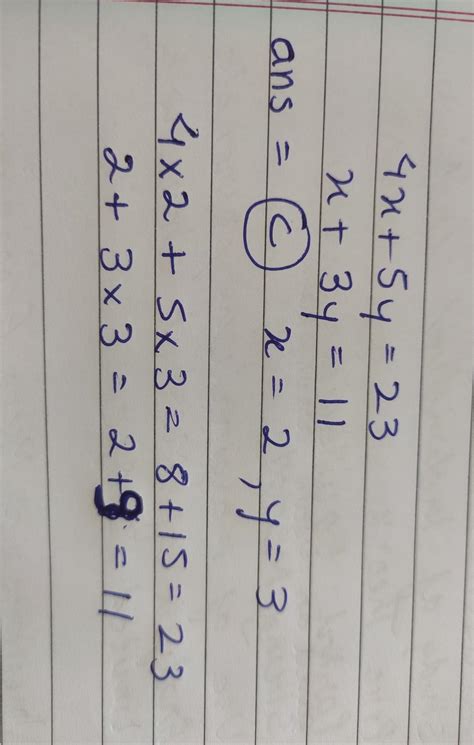 4x+5y = 23
x + 3y = 11
ans = (c) x = 2, y = 3
4×2 + 5×3 = 8+15 = 23
2 + 3×3 = 2+9 = 11